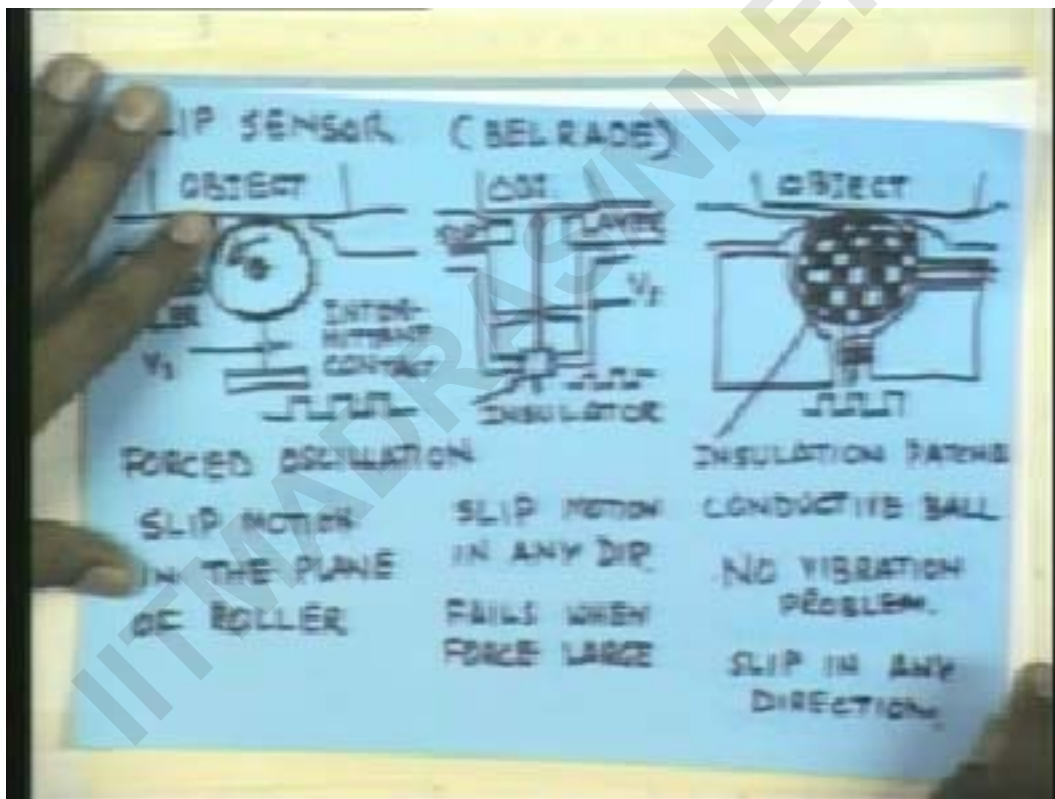 LIP SENSOR (BELRADE)
OBJECT
INTER-
MITTANT
CONTACT
V₂
FORCED OSCILLATION
SLIP MOTION
IN THE PLANE
OF ROLLER
OBJ.
LAYER
INSULATOR
SLIP MOTION
IN ANY DIR
FAILS WHEN
FORCE LARGE
OBJECT
INSULATION
CONDUCTIVE BALL
NO VIBRATION
PROBLEM.
SLIP IN ANY
DIRECTION.